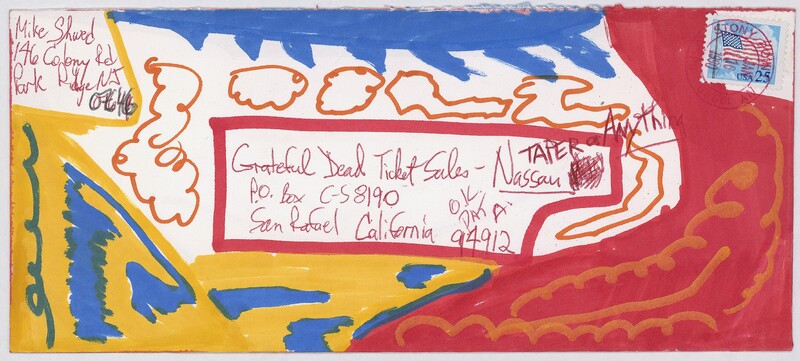 Mike Shwed
146 Colony Rd
Park Ridge NJ
07646
Grateful Dead Ticket Sales - Nassau
TAPER or Anything
P.O. Box C-S 8190
San Rafael California 94912
STONY
USA 25